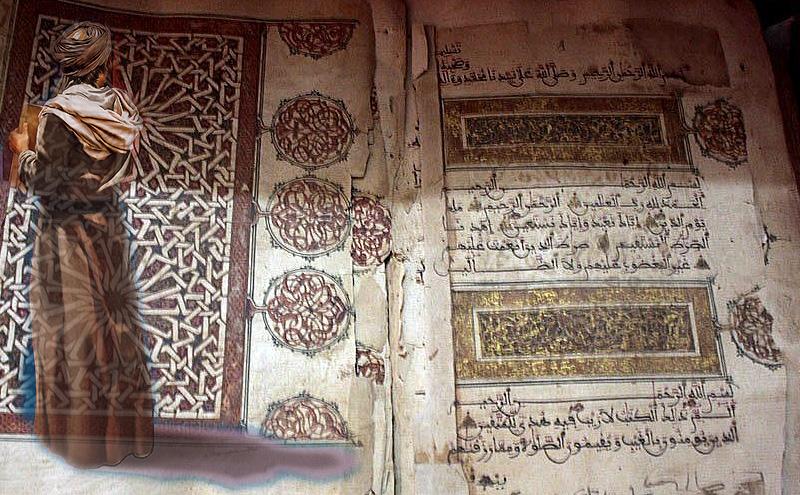 تسليما
وصحبه
بسم الله الرحمن الرحيم وصلى الله على سيدنا محمد وآله
بسم الله الرحمن الرحيم
الحمد لله رب العلمين الرحمن الرحيم ملك
يوم الدين إياك نعبد وإياك نستعين اهدنا
الصرط المستقيم صرط الذين أنعمت عليهم
غير المغضوب عليهم ولا الضالين
بسم الله الرحمن الرحيم
الم ذلك الكتب لا ريب فيه هدى للمتقين
الذين يؤمنون بالغيب ويقيمون الصلوة ومما رزقنهم